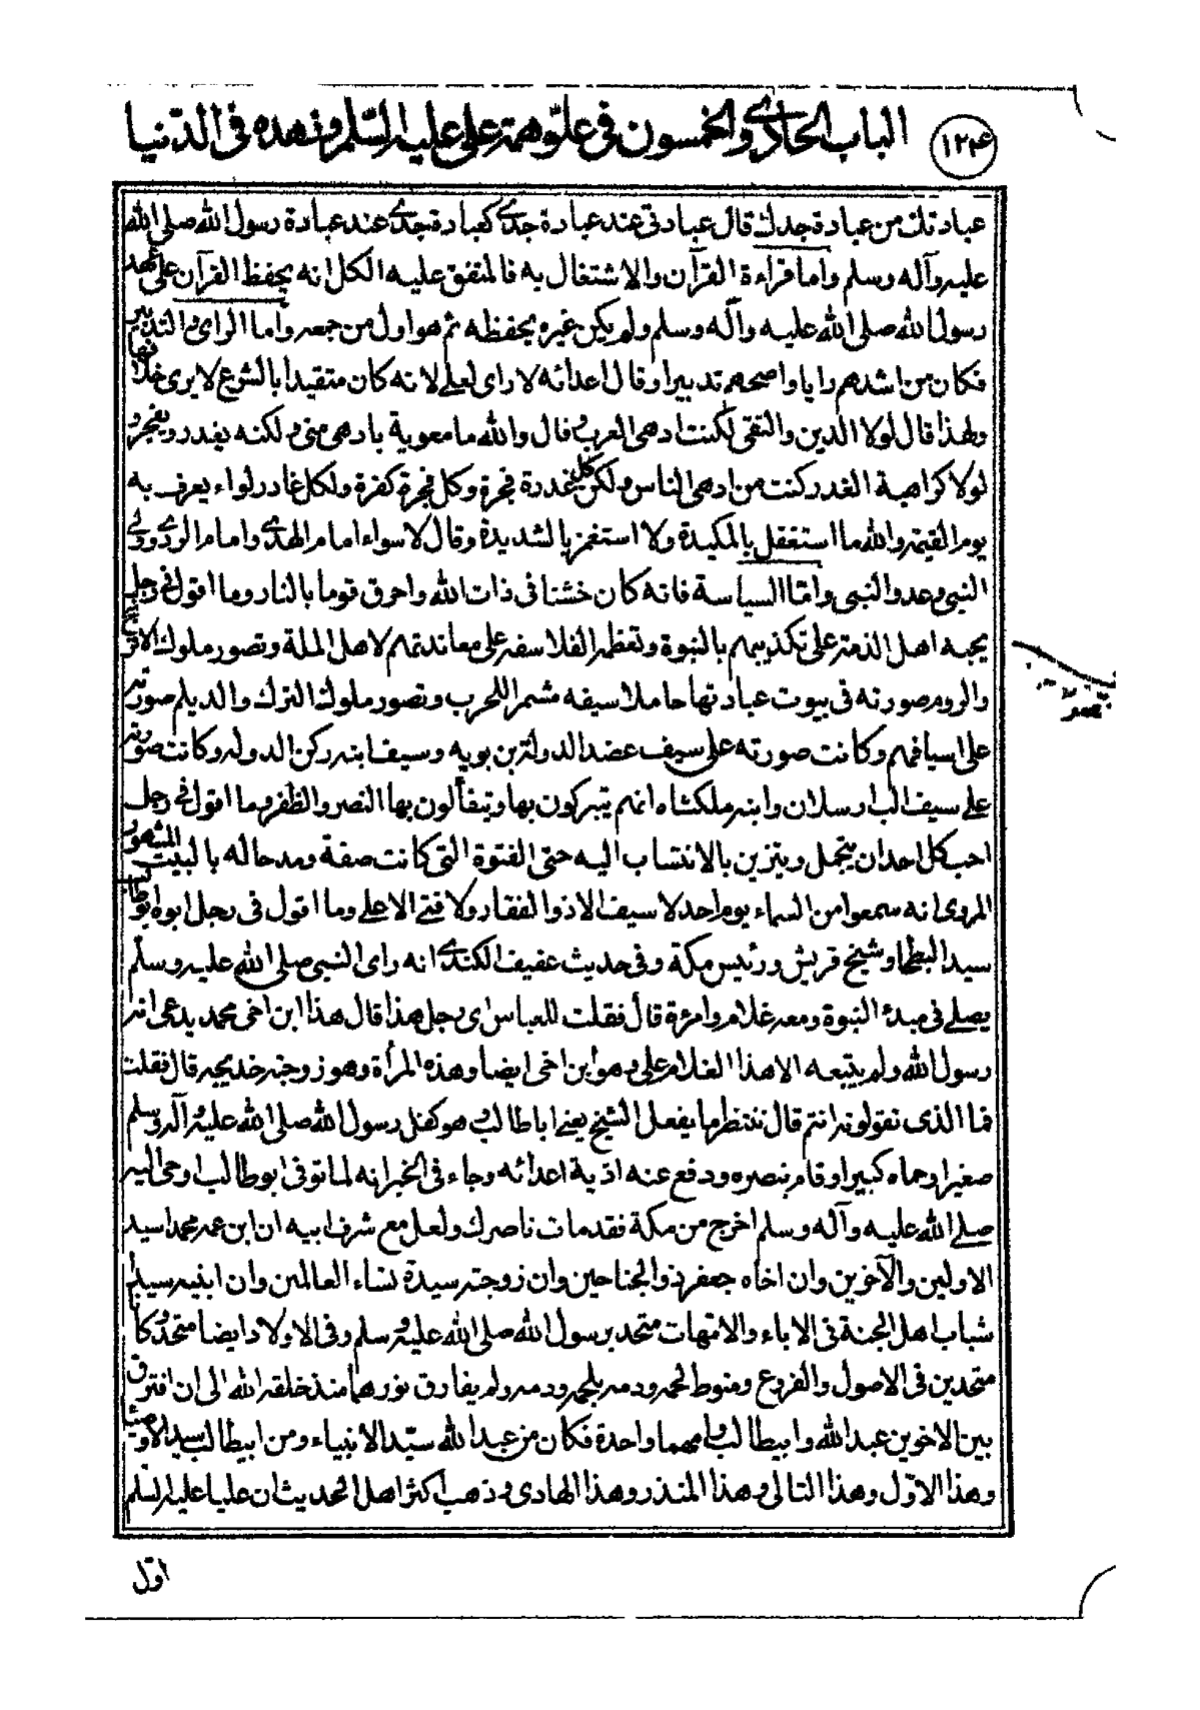 الباب الحادي والخمسون في علو همة علي عليه السلم وزهده في الدنيا
١٢٤
عبادتك من عبادة جدك قال عبادتي عند عبادة جدي كعبادة جدي عند عبادة رسول الله صلى الله
عليه وآله وسلم واما قراءة القرآن والاشتغال به فالمتفق عليه الكل انه يحفظ القرآن على عهد
رسول الله صلى الله عليه وآله وسلم ولم يكن غيره يحفظه ثم هو اول من جمعه واما الراي والتدبير
فكان من اشدهم رايا واصحهم تدبيرا وقال اعدائه لا راي لعلي لانه كان متقيدا بالشرع لا يرى خلافها
ولهذا قال لولا الدين والتقى لكنت ادهى العرب وقال والله ما معوية بادهى مني ولكنه يغدر ويفجر و
لولا كراهية الغدر كنت من ادهى الناس ولكن كل غدرة فجرة وكل فجرة كفرة ولكل غادر لواء يعرف به
يوم القيمة والله ما استغفل بالمكيدة ولا استغمز بالشديدة وقال لا سواء امام الهدى وامام الردى وولي
النبي وعدو النبي واما السياسة فانه كان خشنا في ذات الله واحرق قوما بالنار وما اقول في رجل
يحبه اهل الذمة على تكذيبهم بالنبوة وتعظمه الفلاسفة على معاندتهم لاهل الملة وتصور ملوك الافرنج
والروم صورته في بيوت عباداتها حاملا سيفه مشمر اللحرب وتصور ملوك الترك والديلم صورته
على اسيافهم وكانت صورته على سيف عضد الدولة بن بويه وسيف ابنه ركن الدوله وكانت صورته
على سيف الب ارسلان وابنه ملكشاه انهم يتبركون بها ويتفألون بها النصر والظفر وما اقول في رجل
احب كل احد ان يتجمل ويتزين بالانتساب اليه حتى الفتوة التي كانت صفة ومدحا له بالبيت المشهور
المروى انه سمعوا من السماء يوم احد لا سيف الا ذو الفقار ولا فتى الا علي وما اقول في رجل ابوه ابوطالب
سيد البطحاء وشيخ قريش ورئيس مكة وفي حديث عفيف الكندي انه راى النبي صلى الله عليه وسلم
يصلي في مبدء النبوة ومعه غلام وامرءة قال فقلت للعباس اي رجل هذا قال هذا ابن اخي محمد يدعى انه
رسول الله ولم يتبعه الا هذا الغلام علي وهو ابن اخي ايضا وهذه المرأة وهو زوجته خديجه قال فقلت
فما الذي تقولونه انتم قال ننتظر ما يفعل الشيخ يعني اباطالب وهو كفل رسول الله صلى الله عليه وآله وسلم
صغيرا وحماه كبيرا وقام بنصره ودفع عنه اذية اعدائه وجاء في الخبر انه لما توفى ابوطالب اوحى اليه
صلى الله عليه وآله وسلم اخرج من مكة فقد مات ناصرك ولعلي مع شرف ابيه ان ابن عمه محمد سيد
الاولين والآخرين وان اخاه جعفر ذو الجناحين وان زوجته سيدة نساء العالمين وان ابنيه سيدا
شباب اهل الجنة في الاباء والامهات متحد برسول الله صلى الله عليه وسلم وفي الاولاد ايضا متحد وكا
متحدين في الاصول والفروع ومنوط لحمه ودمه بلحمه ودمه ولم يفارق نورهما منذ خلقه الله الى ان افترق
بين الاخوين عبد الله وابيطالب وامهما واحدة فكان من عبد الله سيّد الانبياء ومن ابيطالب سيد الاوصياء
وهذا الاوّل وهذا التالي وهذا المنذر وهذا الهادي وذهب اكثر اهل الحديث ان عليا عليه السلم
اوّل